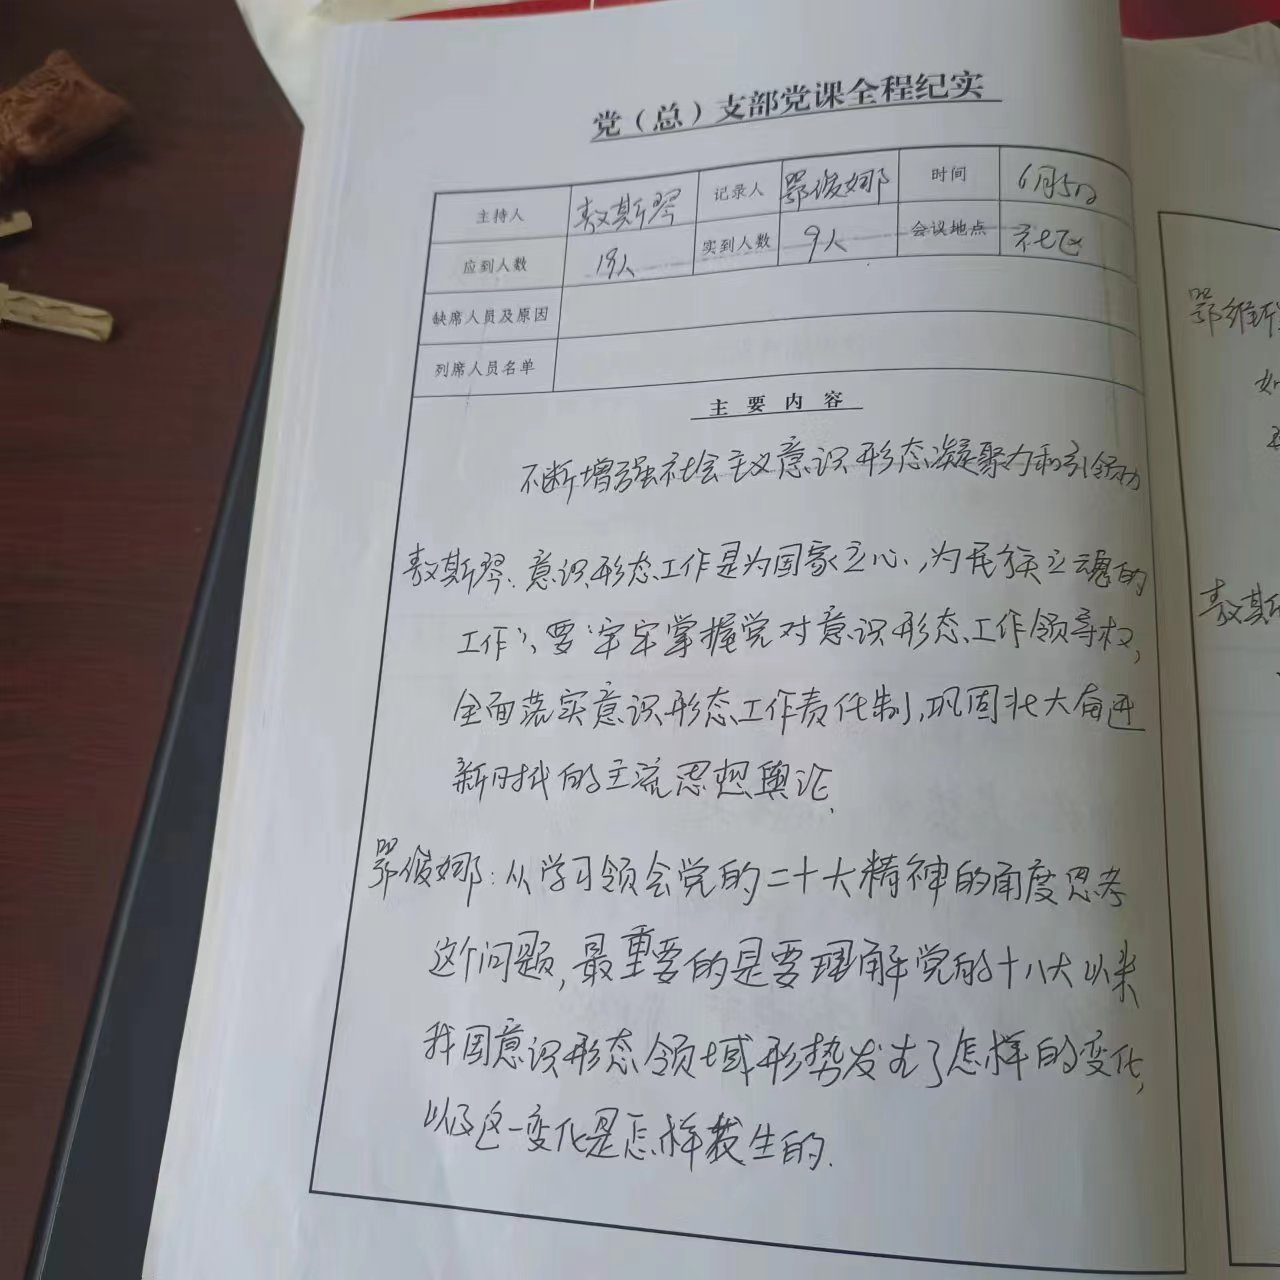 党（总）支部党课全程纪实
主持人 敖斯琴 记录人 鄂俊娜 时间 6月5日
应到人数 实到人数 9人 会议地点 社区
缺席人员及原因
列席人员名单
主要内容
不断增强社会主义意识形态凝聚力和引领力
敖斯琴：意识形态工作是为国家立心、为民族立魂的
工作、要牢牢掌握党对意识形态工作领导权，
全面落实意识形态工作责任制，巩固壮大奋进
新时代的主流思想舆论.
鄂俊娜：从学习领会党的二十大精神的角度思考
这个问题，最重要的是要理解党的十八大以来
我国意识形态领域形势发生了怎样的变化，
以及这一变化是怎样发生的.
鄂维
如
敖斯